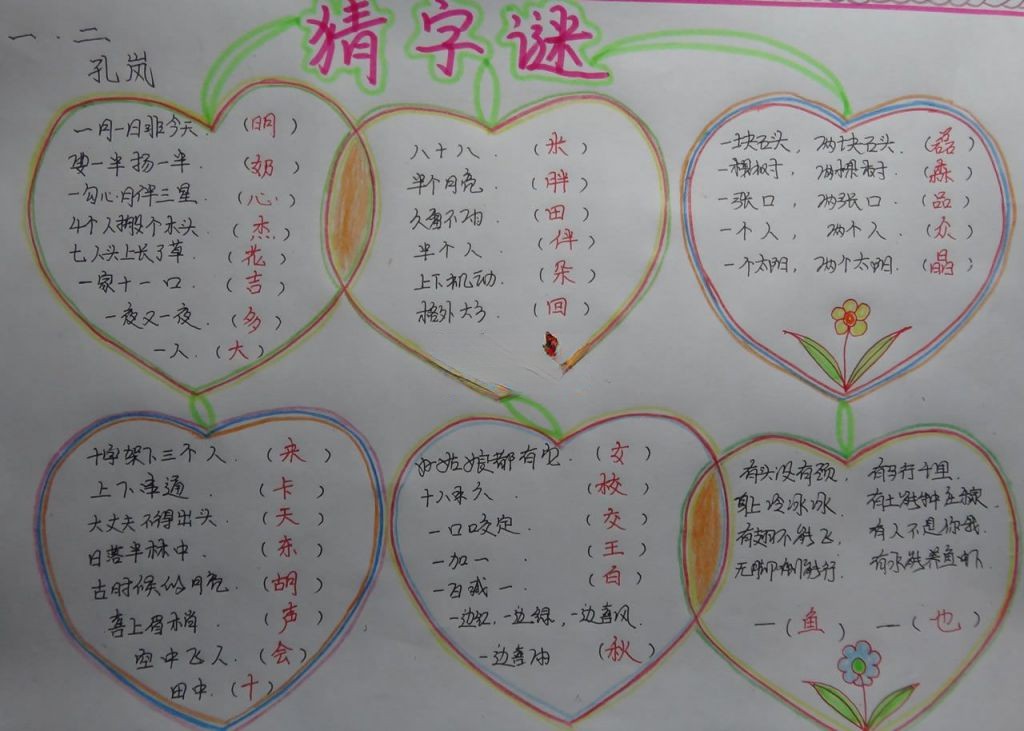 猜字谜
一.二
孔岚
一月一日非今天.（明）
要一半扬一半.（奶）
一勾心月伴三星.（心）
4个人搬个木头.（杰）
七人头上长了草.（花）
一家十一口.（吉）
一夜又一夜.（多）
一人.（大）
八十八.（米）
半个月亮.（胖）
久雨不油（田）
半个人.（伴）
上下机动.（朵）
格外大方.（回）
一块石头，两块石头.（磊）
一棵树，两棵树.（森）
一张口，两张口.（品）
一个人，两个人.（众）
一个太阳，两个太阳.（晶）
十字架下三个人.（来）
上下串通（卡）
大丈夫不得出头.（天）
日落半林中.（东）
古时候的月亮.（胡）
喜上眉梢（声）
空中飞人.（会）
田中.（十）
好姑娘都有它.（女）
十八乘六.（校）
一口咬定.（交）
一加一.（王）
一百减一.（白）
一边红，一边绿，一边喜风.
一边喜雨（秋）
有头没有颈， 有马行千里.
身上冷冰冰. 有土能种庄稼.
有翅不能飞， 有人不是你我.
无脚却能行. 有水能养鱼虾.
一（鱼） 一（也）